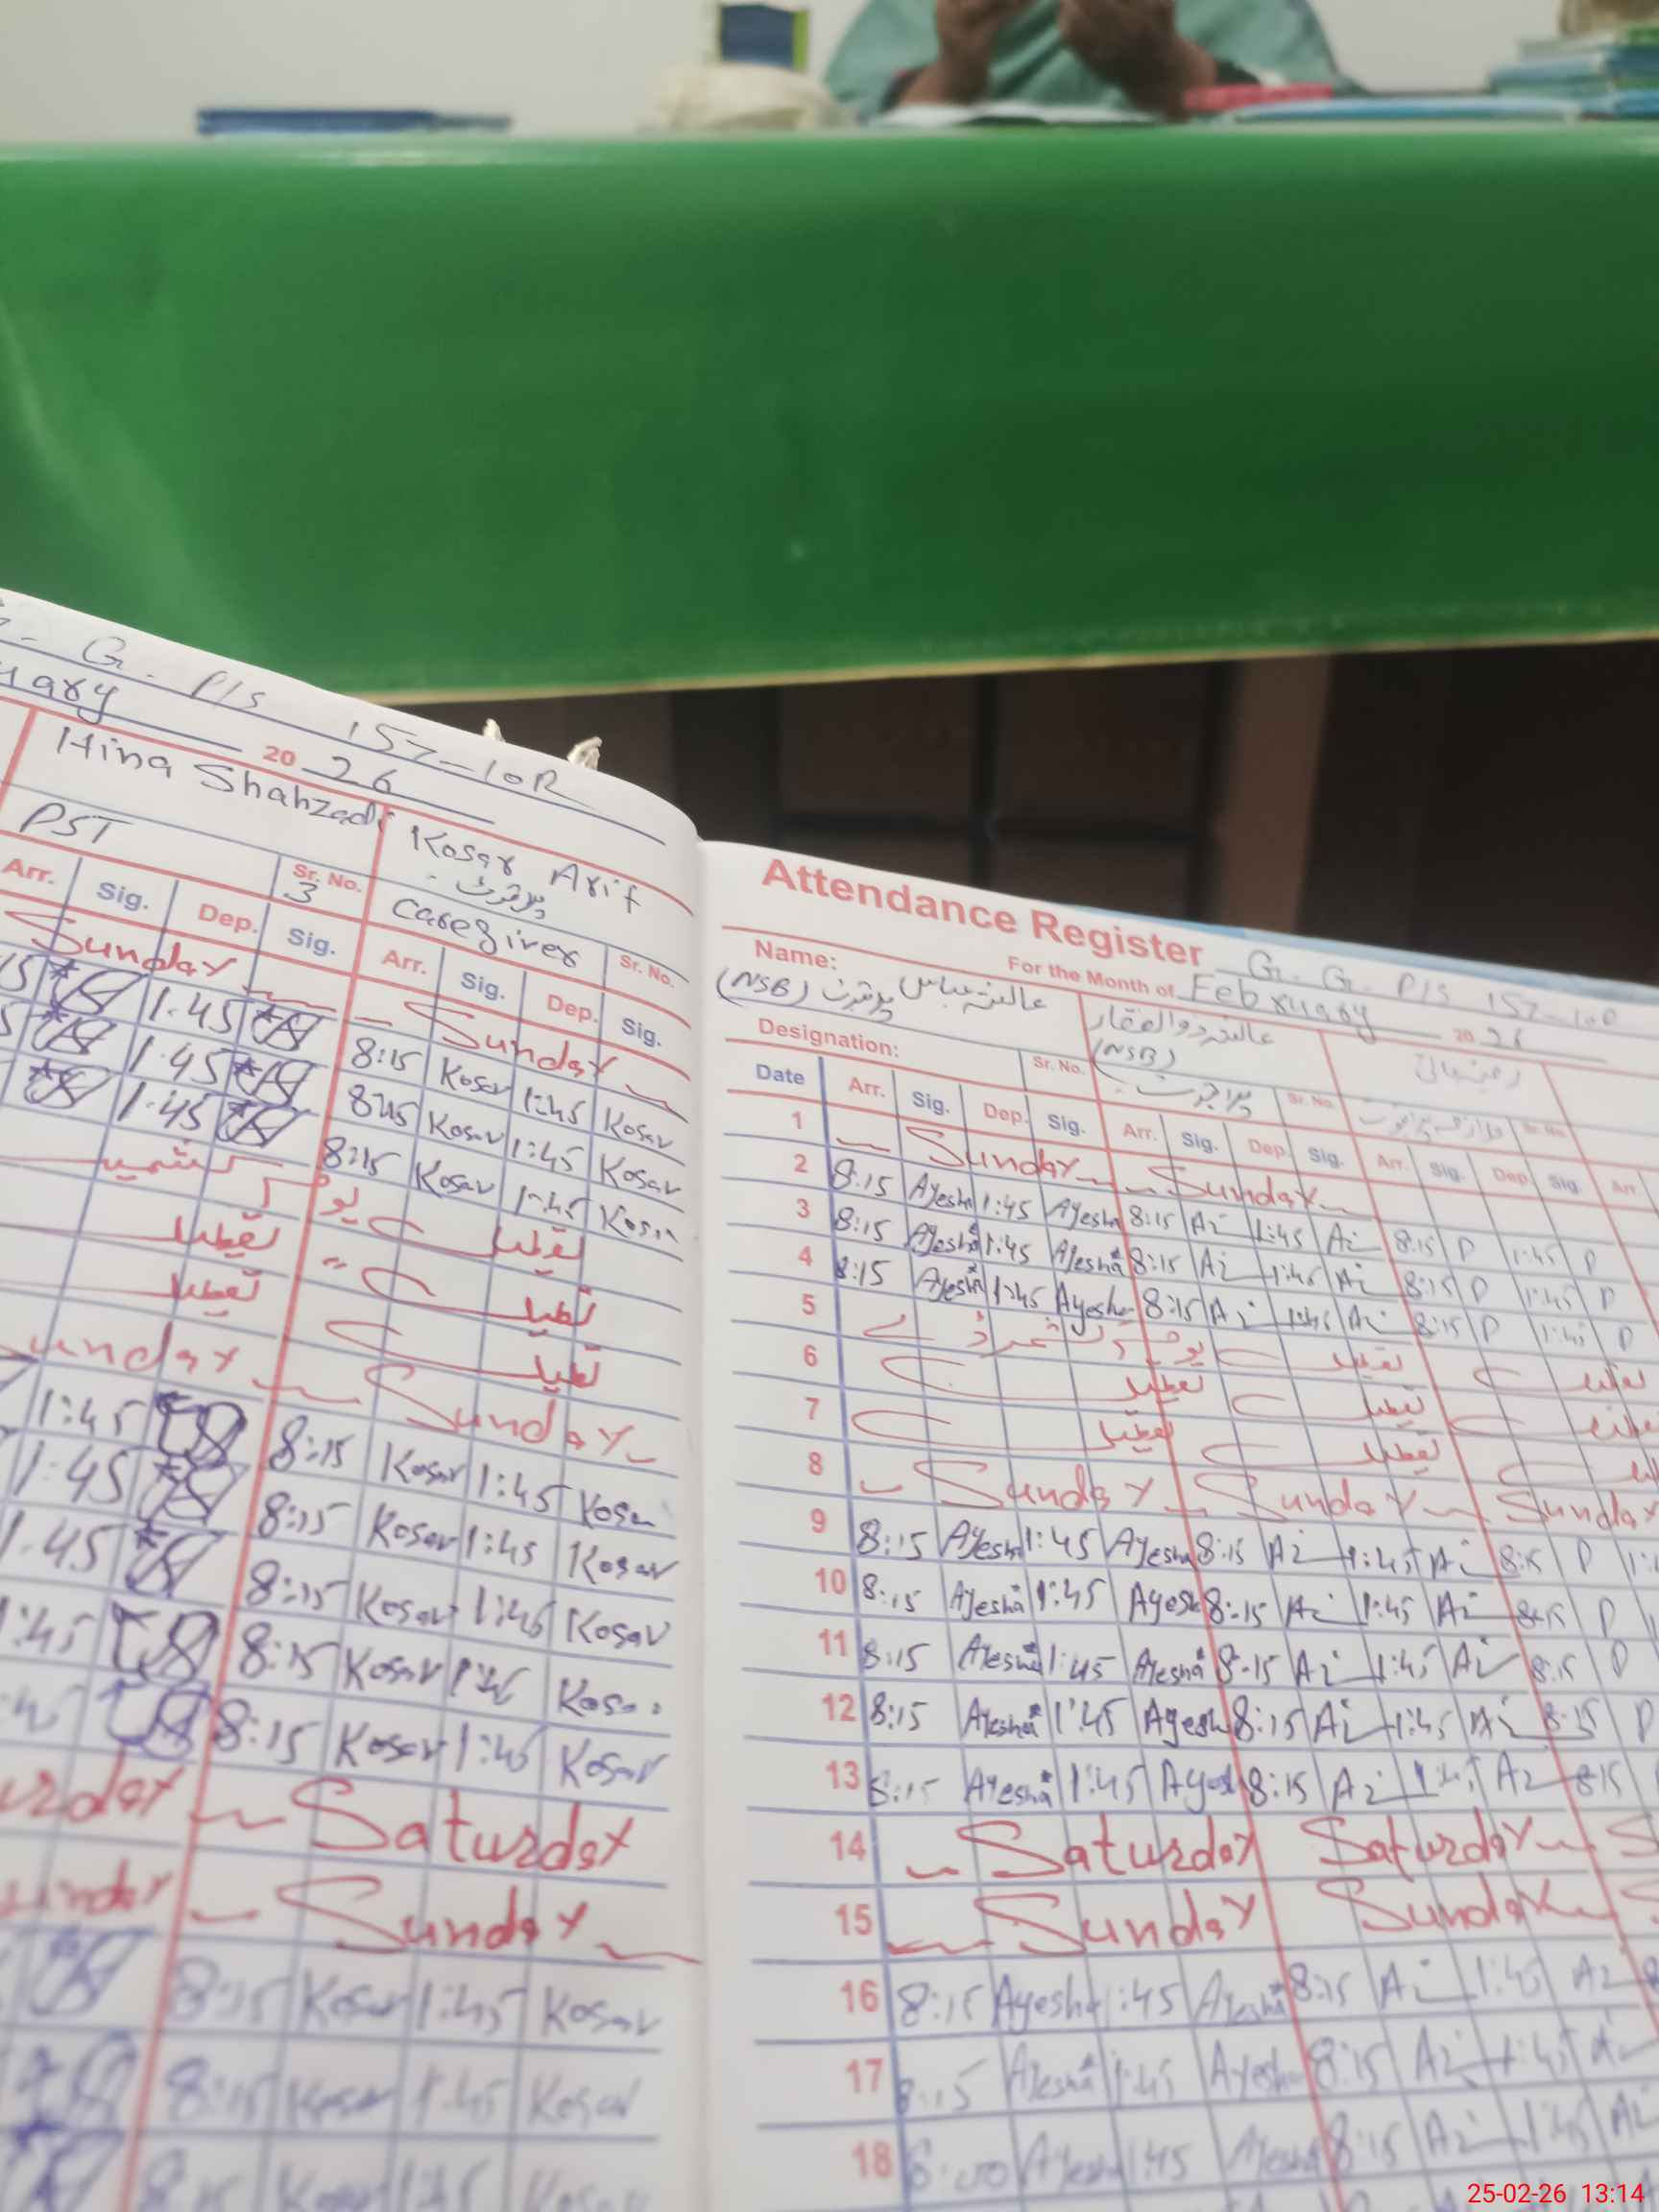 G. P/S 157-10R
uary 20 26
Hina Shahzadi
Kosar Arif
PST
Sr. No. 3
Caregiver
Sr. No.
Arr. Sig. Dep. Sig.
Arr. Sig. Dep. Sig.
Sunday
Sunday
1.45
8:15 Kosar 1:45 Kosar
1.45
8:15 Kosar 1:45 Kosar
1.45
8:15 Kosar 1:45 Kosar
یوم کشمیر
تعطیل
تعطیل
تعطیل
تعطیل
تعطیل
Sunday
Sunday
1:45
8:15 Kosar 1:45 Kosar
1:45
8:15 Kosar 1:45 Kosar
1.45
8:15 Kosar 1:45 Kosar
1:45
8:15 Kosar 1:45 Kosar
8:15 Kosar 1:45 Kosar
urday
Saturday
unday
Sunday
8:15 Kosar 1:45 Kosar
8:15 Kosar 1:45 Kosar
8:15 Kosar 1:45 Kosar
Attendance Register G. G. P/S 157-10R
For the Month of February 20 26
Name:
(NSB)
(NSB)
Designation:
Sr. No.
Sr. No.
Sr. No.
Date Arr. Sig. Dep. Sig. Arr. Sig. Dep. Sig. Arr. Sig. Dep. Sig. Arr.
1 Sunday Sunday
2 8:15 Ayesha 1:45 Ayesha 8:15 Ai 1:45 Ai 8:15 P 1:45 P
3 8:15 Ayesha 1:45 Ayesha 8:15 Ai 1:45 Ai 8:15 P 1:45 P
4 8:15 Ayesha 1:45 Ayesha 8:15 Ai 1:45 Ai 8:15 P 1:45 P
5 یوم تعطیل تعطیل
6 تعطیل تعطیل
7 تعطیل تعطیل
8 Sunday Sunday Sunday
9 8:15 Ayesha 1:45 Ayesha 8:15 Ai 1:45 Ai 8:15 P
10 8:15 Ayesha 1:45 Ayesh 8:15 Ai 1:45 Ai 8:15 P
11 8:15 Ayesha 1:45 Ayesha 8:15 Ai 1:45 Ai 8:15 P
12 8:15 Ayesha 1:45 Ayesh 8:15 Ai 1:45 Ai 8:15 P
13 8:15 Ayesha 1:45 Ayesh 8:15 Ai 1:45 Ai 8:15
14 Saturday Saturday S
15 Sunday Sunday S
16 8:15 Ayesha 1:45 Ayesha 8:15 Ai 1:45 Ai
17 8:15 Ayesha 1:45 Ayesha 8:15 Ai 1:45 Ai
18 Ayesha 1:45 Ayesha 8:15 Ai 1:45 Ai
25-02-26 13:14